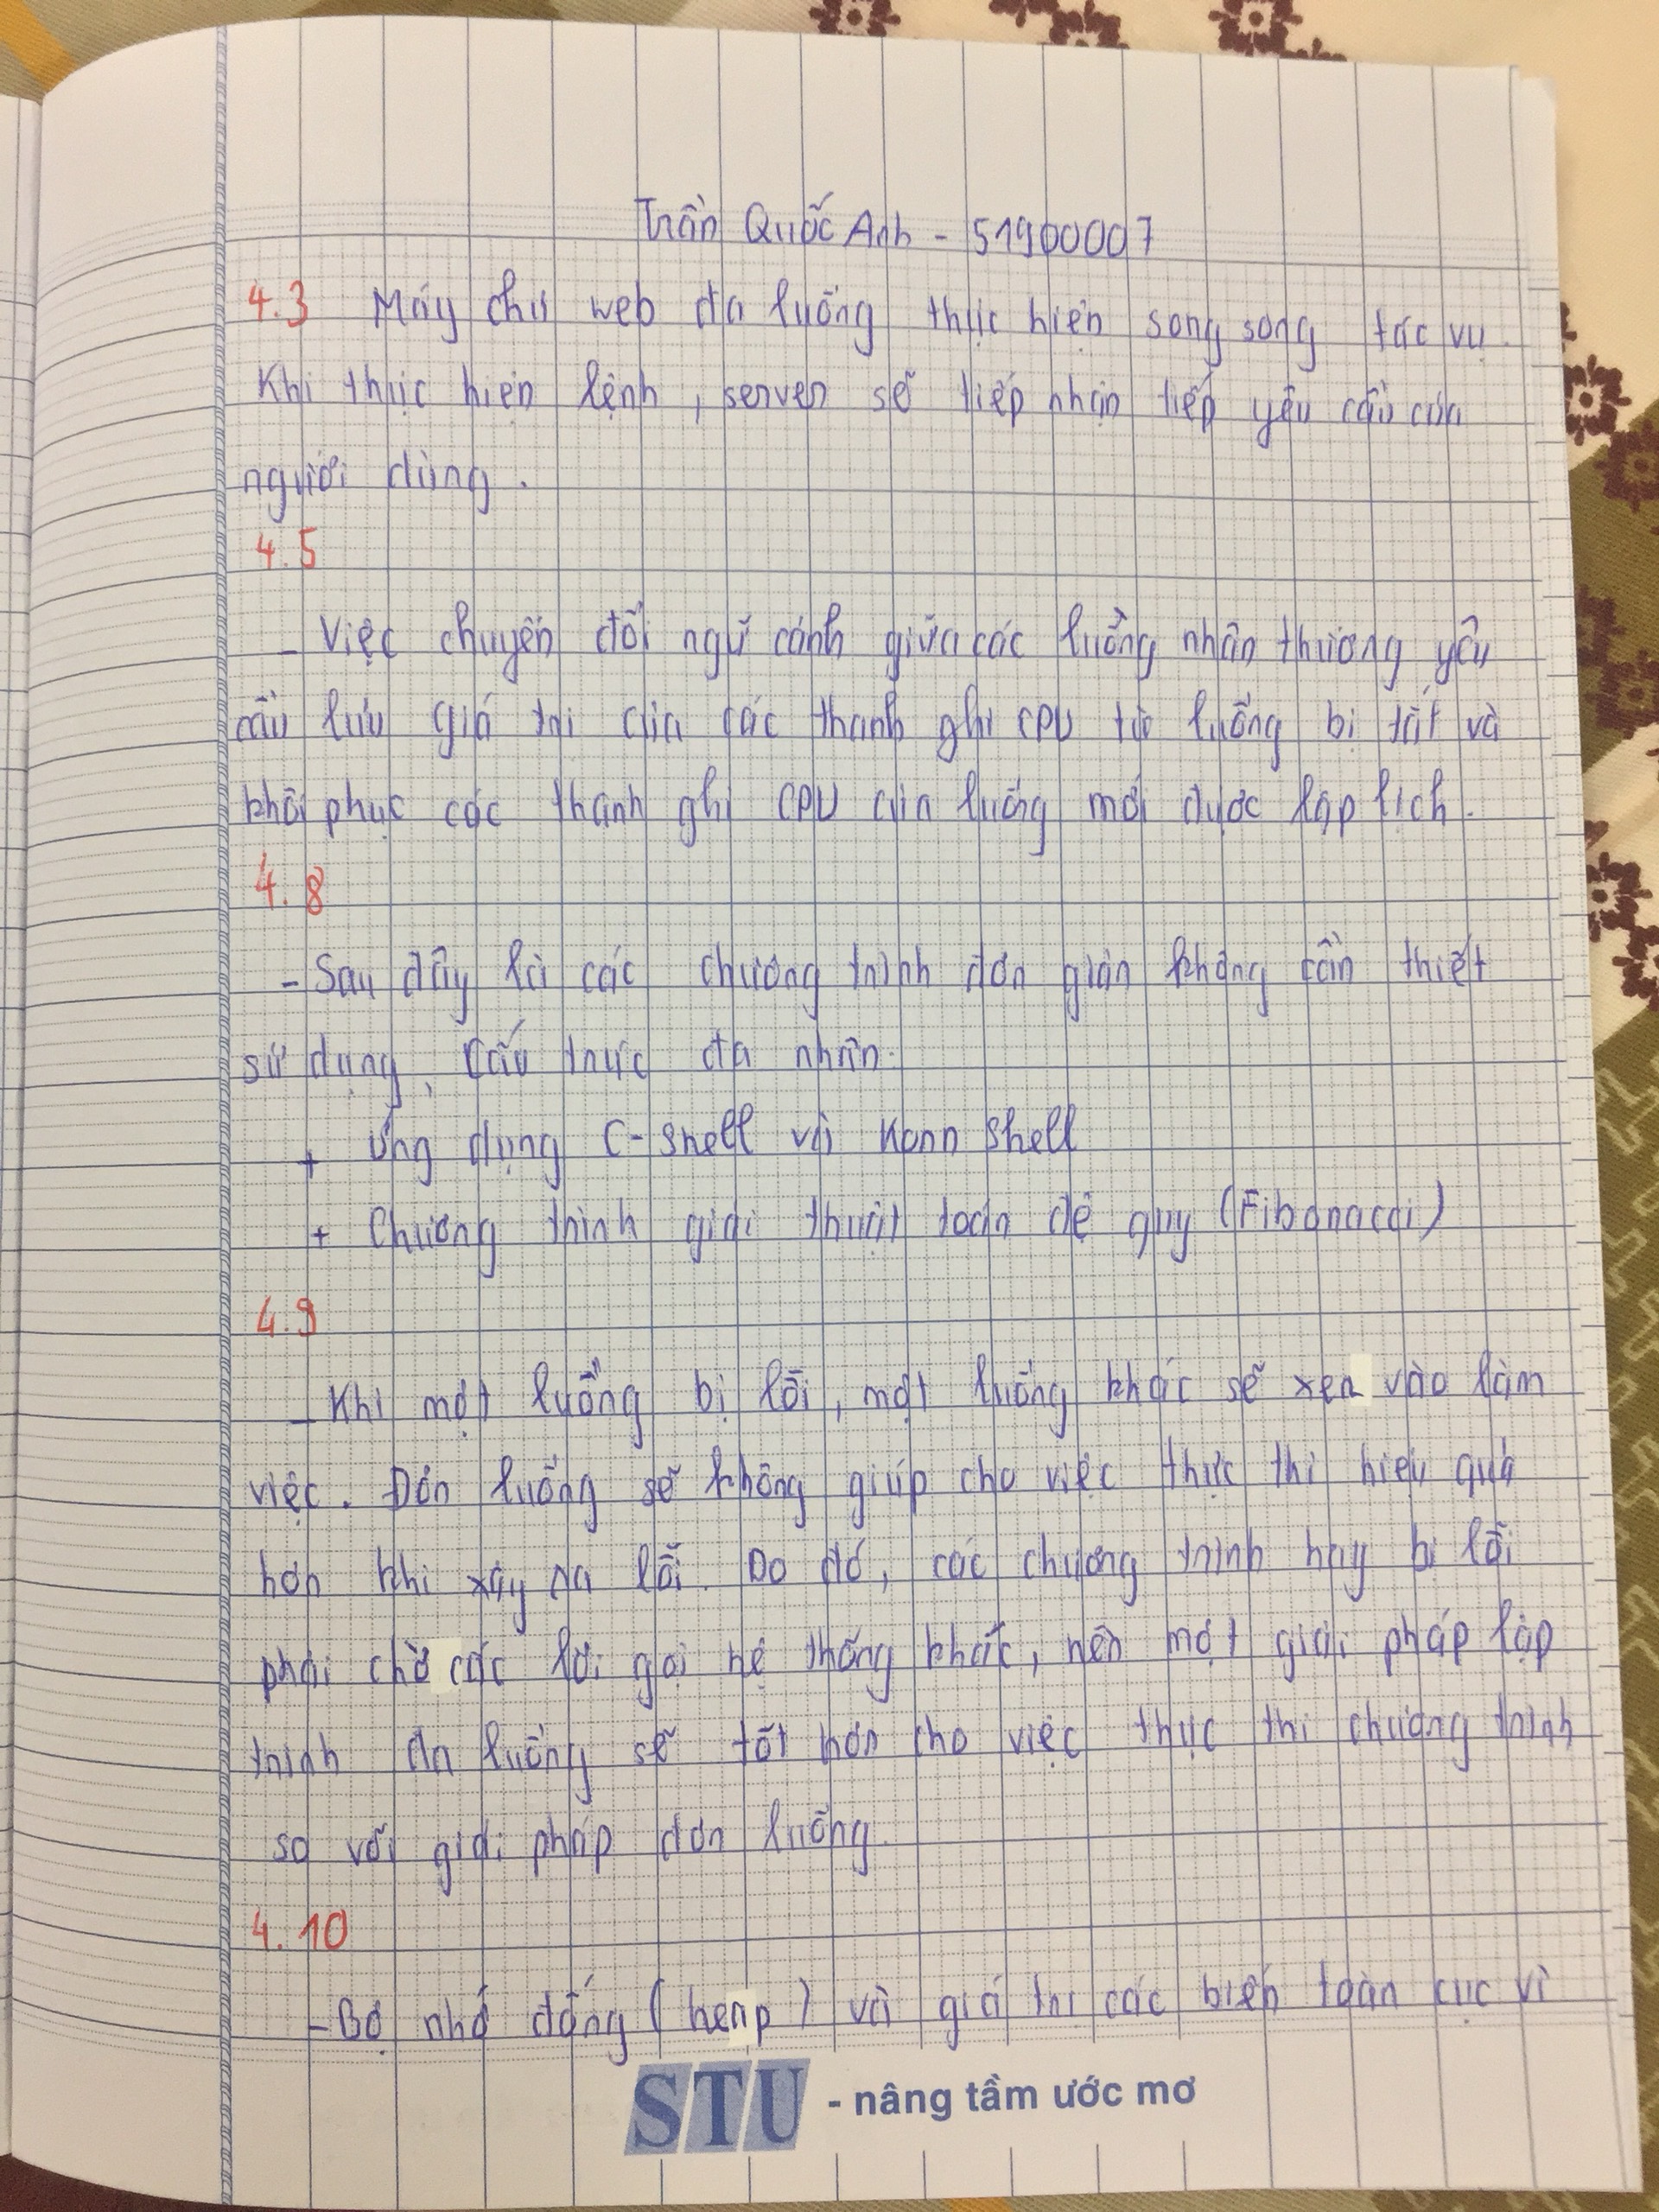 Trần Quốc Anh - 51900007
4.3 Máy chủ web đa luồng thực hiện song song tác vụ.
Khi thực hiện lệnh, server sẽ tiếp nhận tiếp yêu cầu của
người dùng.
4.5
- Việc chuyển đổi ngữ cảnh giữa các luồng nhân thường yêu
cầu lưu giá trị của các thanh ghi CPU từ luồng bị tắt và
khôi phục các thanh ghi CPU của luồng mới được lập lịch.
4.8
- Sau đây là các chương trình đơn giản không cần thiết
sử dụng cấu trúc đa nhân.
+ Ứng dụng C-shell và Korn shell
+ Chương trình giải thuật toán đệ quy (Fibonacci)
4.9
- Khi một luồng bị lỗi, một luồng khác sẽ xen vào làm
việc. Đơn luồng sẽ không giúp cho việc thực thi hiệu quả
hơn khi xảy ra lỗi. Do đó, các chương trình hay bị lỗi
phải chờ các lời gọi hệ thống khác, nên một giải pháp lập
trình đa luồng sẽ tốt hơn cho việc thực thi chương trình
so với giải pháp đơn luồng.
4.10
- Bộ nhớ động (heap) và giá trị các biến toàn cục vì
STU - nâng tầm ước mơ